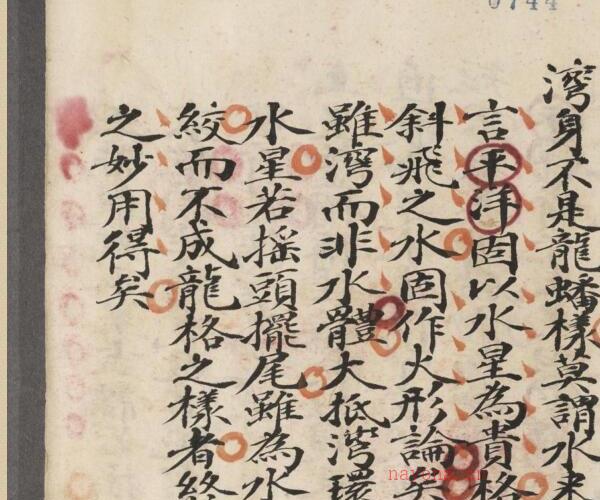 0744
灣身不是龍蟠樣莫謂水來
言平洋固以水星為貴格
斜飛之水固作火形論矣
雖灣而非水體大抵灣環
水星若搖頭擺尾雖為水
絞而不成龍格之樣者終
之妙用得矣